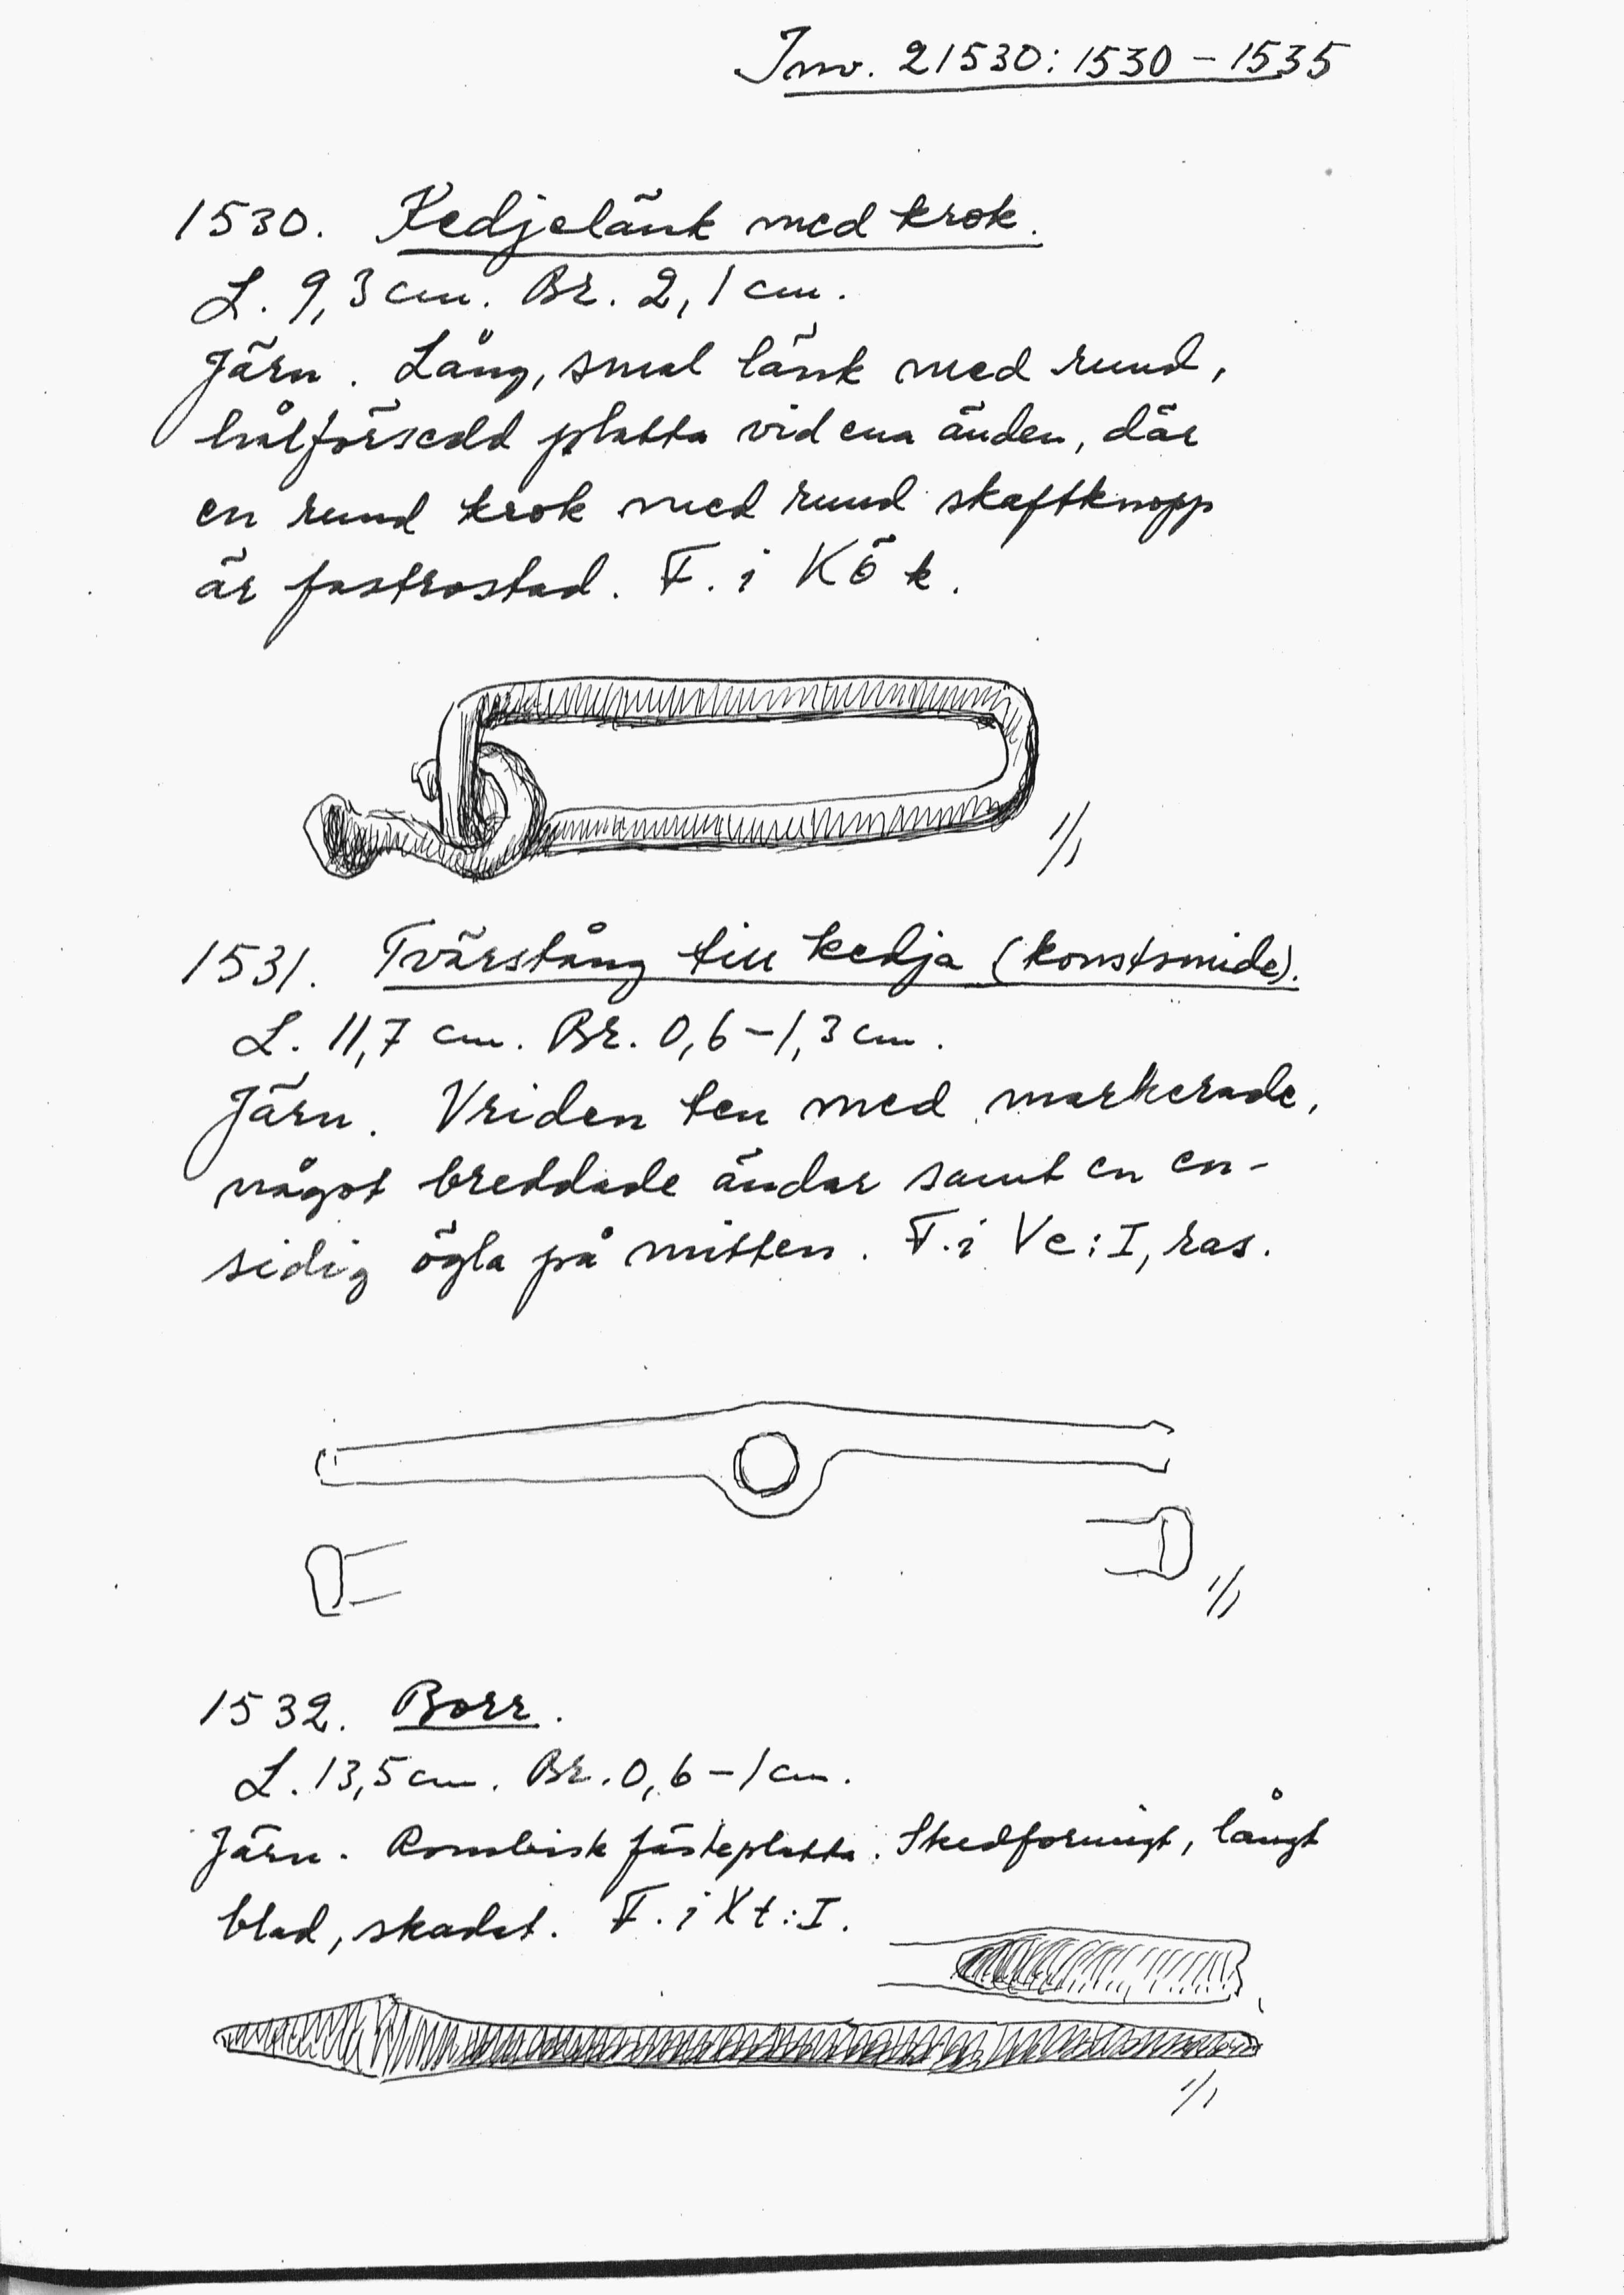 Inv. 21530:1530-1535
1530. Kedjelänk med krok.
L. 9,3 cm. Br. 2,1 cm.
Järn. Lång, smal länk med rund,
hålförsedd platta vid ena änden, där
en rund krok med rund skaftknopp
är fastrostad. F. i Kök.
1/1
1531. Tvärstång till kedja (konstsmide).
L. 11,7 cm. Br. 0,6-1,3 cm.
Järn. Vriden ten med markerade,
något breddade ändar samt en en-
sidig ögla på mitten. F. i Ve:I, ras.
1/1
1532. Borr.
L. 13,5 cm. Br. 0,6-1 cm.
Järn. Rombisk fästeplatta. Skedformigt, långt
blad, skadat. F. i Xt:I.
1/1